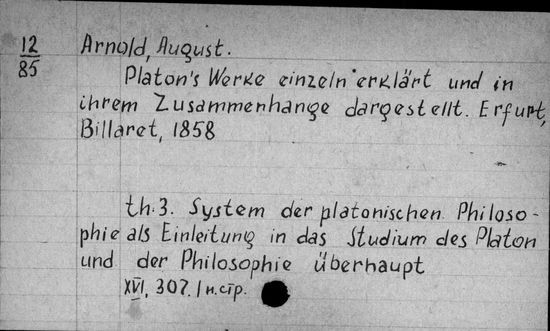 12
85
Arnold, August.
Platon's Werke einzeln erklärt und in
ihrem Zusammenhange dargestellt. Erfurt,
Billaret, 1858
th.3. System der platonischen Philoso-
phie als Einleitung in das Studium des Platon
und der Philosophie überhaupt
XVI, 307. 1 н.стр.